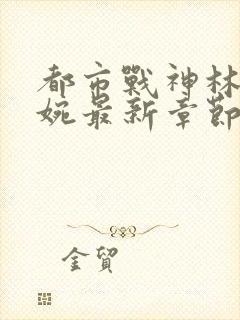 都市戰神林
婉最新章節
金貿